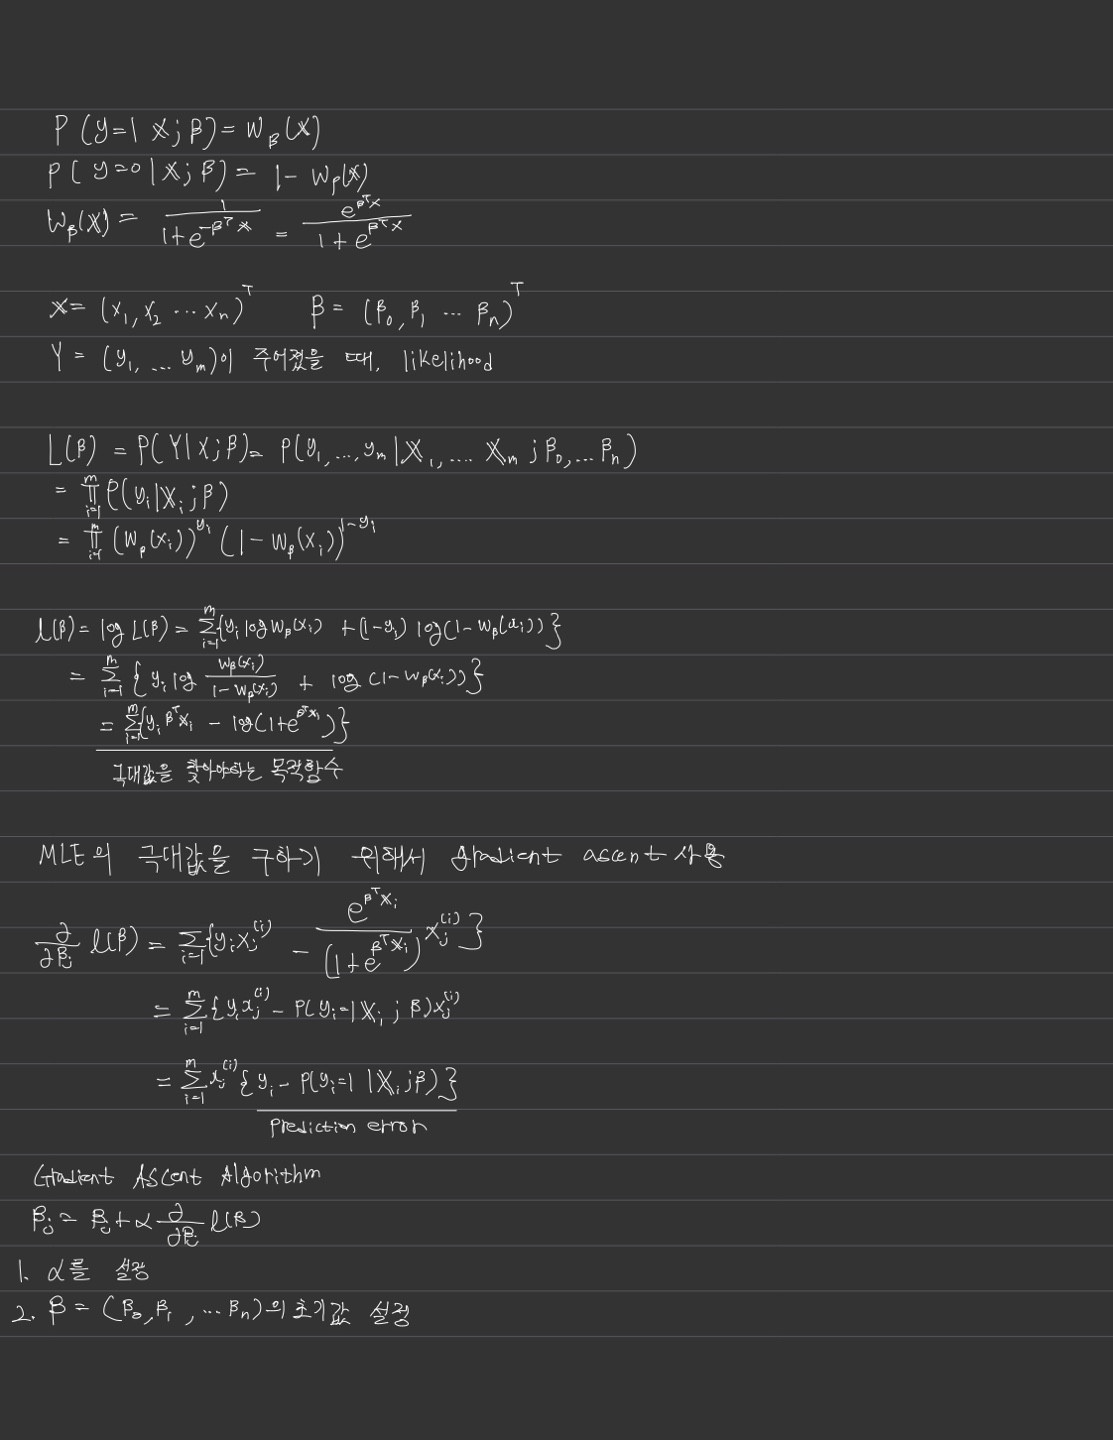 P(y=1 X;β)=W_β(X)
P(y=0|X;β)= 1-W_β(X)
W_β(X) = 1/(1+e^(-β^T X)) = e^(β^T X)/(1+e^(β^T X))
X= (x_1, x_2 ... x_n)^T β= (β_0, β_1 ... β_n)^T
Y= (y_1, ... y_m)이 주어졌을 때, likelihood
L(β) = P(Y|X;β)= P(y_1,...,y_m|X_1,.... X_m ; β_0,... β_n)
= ∏_{i=1}^m P(y_i|X_i;β)
= ∏_{i=1}^m (W_β(x_i))^(y_i) (1-W_β(x_i))^(1-y_i)
l(β)= log L(β) = ∑_{i=1}^m {y_i log W_β(x_i) +(1-y_i) log(1-W_β(x_i))}
= ∑_{i=1}^m {y_i log W_β(x_i)/(1-W_β(x_i)) + log(1-W_β(x_i))}
= ∑_{i=1}^m {y_i β^T X_i - log(1+e^(β^T X_i))}
극대값을 찾아야하는 목적함수
MLE의 극대값을 구하기 위해서 gradient ascent 사용
∂/∂β_j l(β) = ∑_{i=1} {y_i x_j^(i) - e^(β^T X_i)/(1+e^(β^T X_i)) x_j^(i)}
= ∑_{i=1}^m {y_i x_j^(i) - P(y_i=1|X_i ; β)x_j^(i)}
= ∑_{i=1}^m x_j^(i) {y_i - P(y_i=1 |X_i;β)}
prediction error
Gradient Ascent Algorithm
β_j = β_j + α ∂/∂β_j l(β)
1. α를 설정
2. β = (β_0, β_1, ... β_n)의 초기값 설정